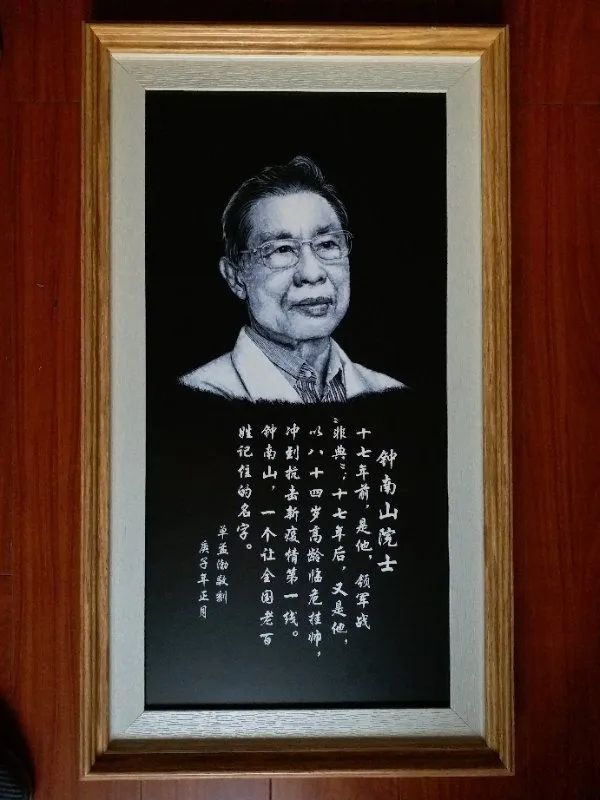 钟南山院士
十七年前，是他，领军战
“非典”；十七年后，又是他，
以八十四岁高龄临危挂帅，
冲到抗击新疫情第一线。
钟南山，一个让全国老百
姓记住的名字。
单孟渤敬刻
庚子年正月